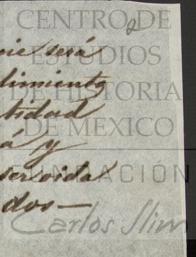 CENTRO DE
ESTUDIOS
DE HISTORIA
DE MEXICO
Carlos Slim
será
dimiento
tidad
á y
servida
dos—